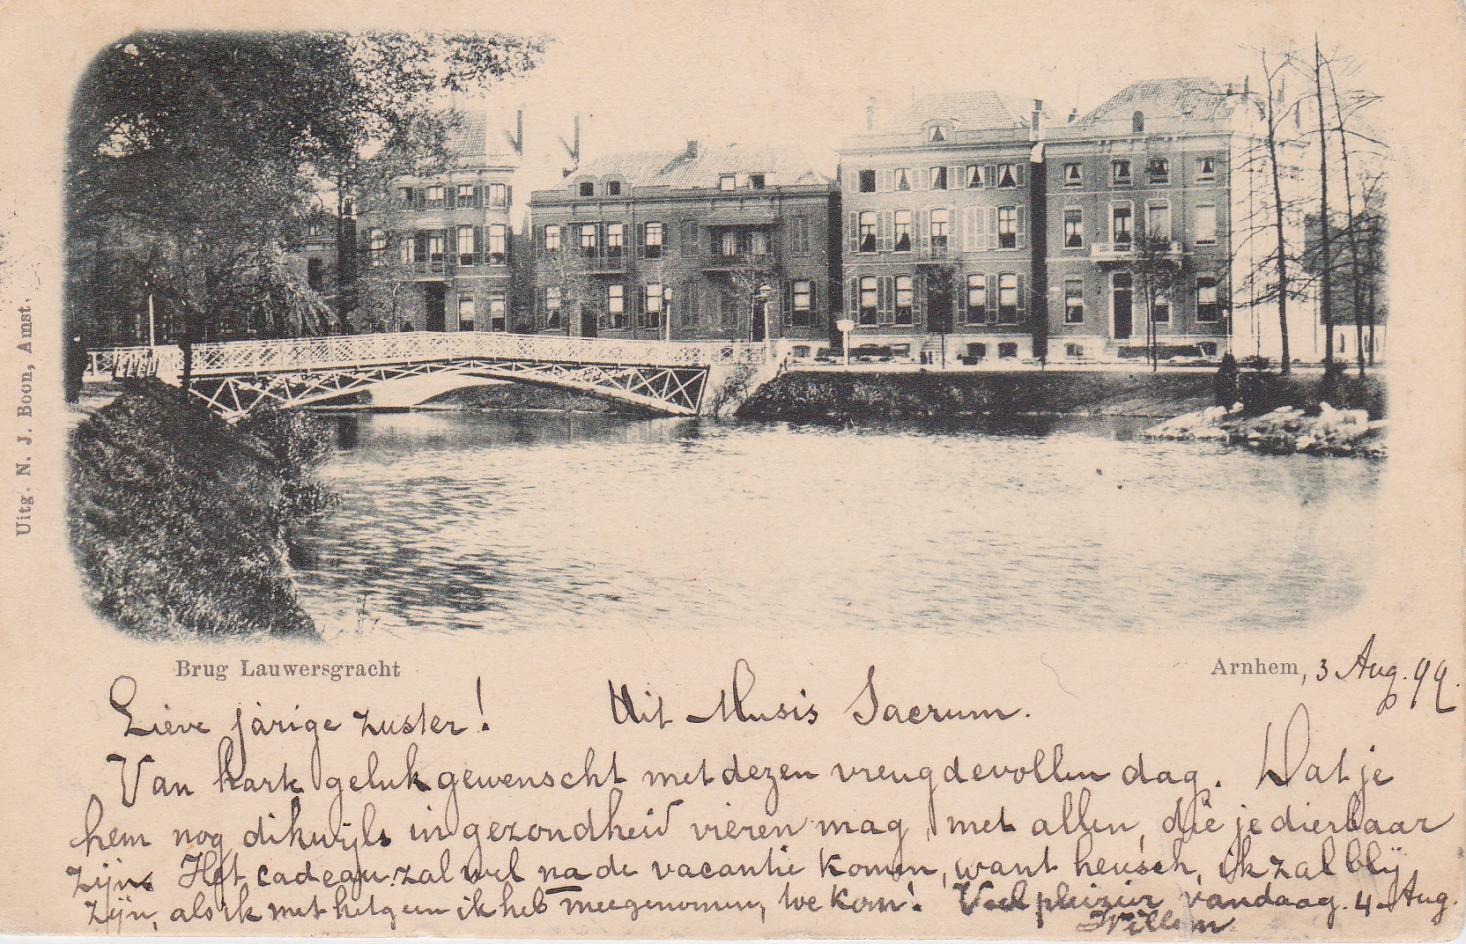 Uitg. N. J. Boon, Amst.
Brug Lauwersgracht
Arnhem, 3 Aug. 99.
Lieve jarige zuster! Uit Musis Sacrum.
Van hart geluk gewenscht met dezen vreugdevollen dag. Dat je
hem nog dikwijls in gezondheid vieren mag, met allen, die je dierbaar
zijn. Het cadeau zal wel na de vacantie komen, want heusch, ik zal blij
zijn, als ik met hetgeen ik heb meegenomen, toe kom! Veel pleizier vandaag. 4 Aug.
Willem